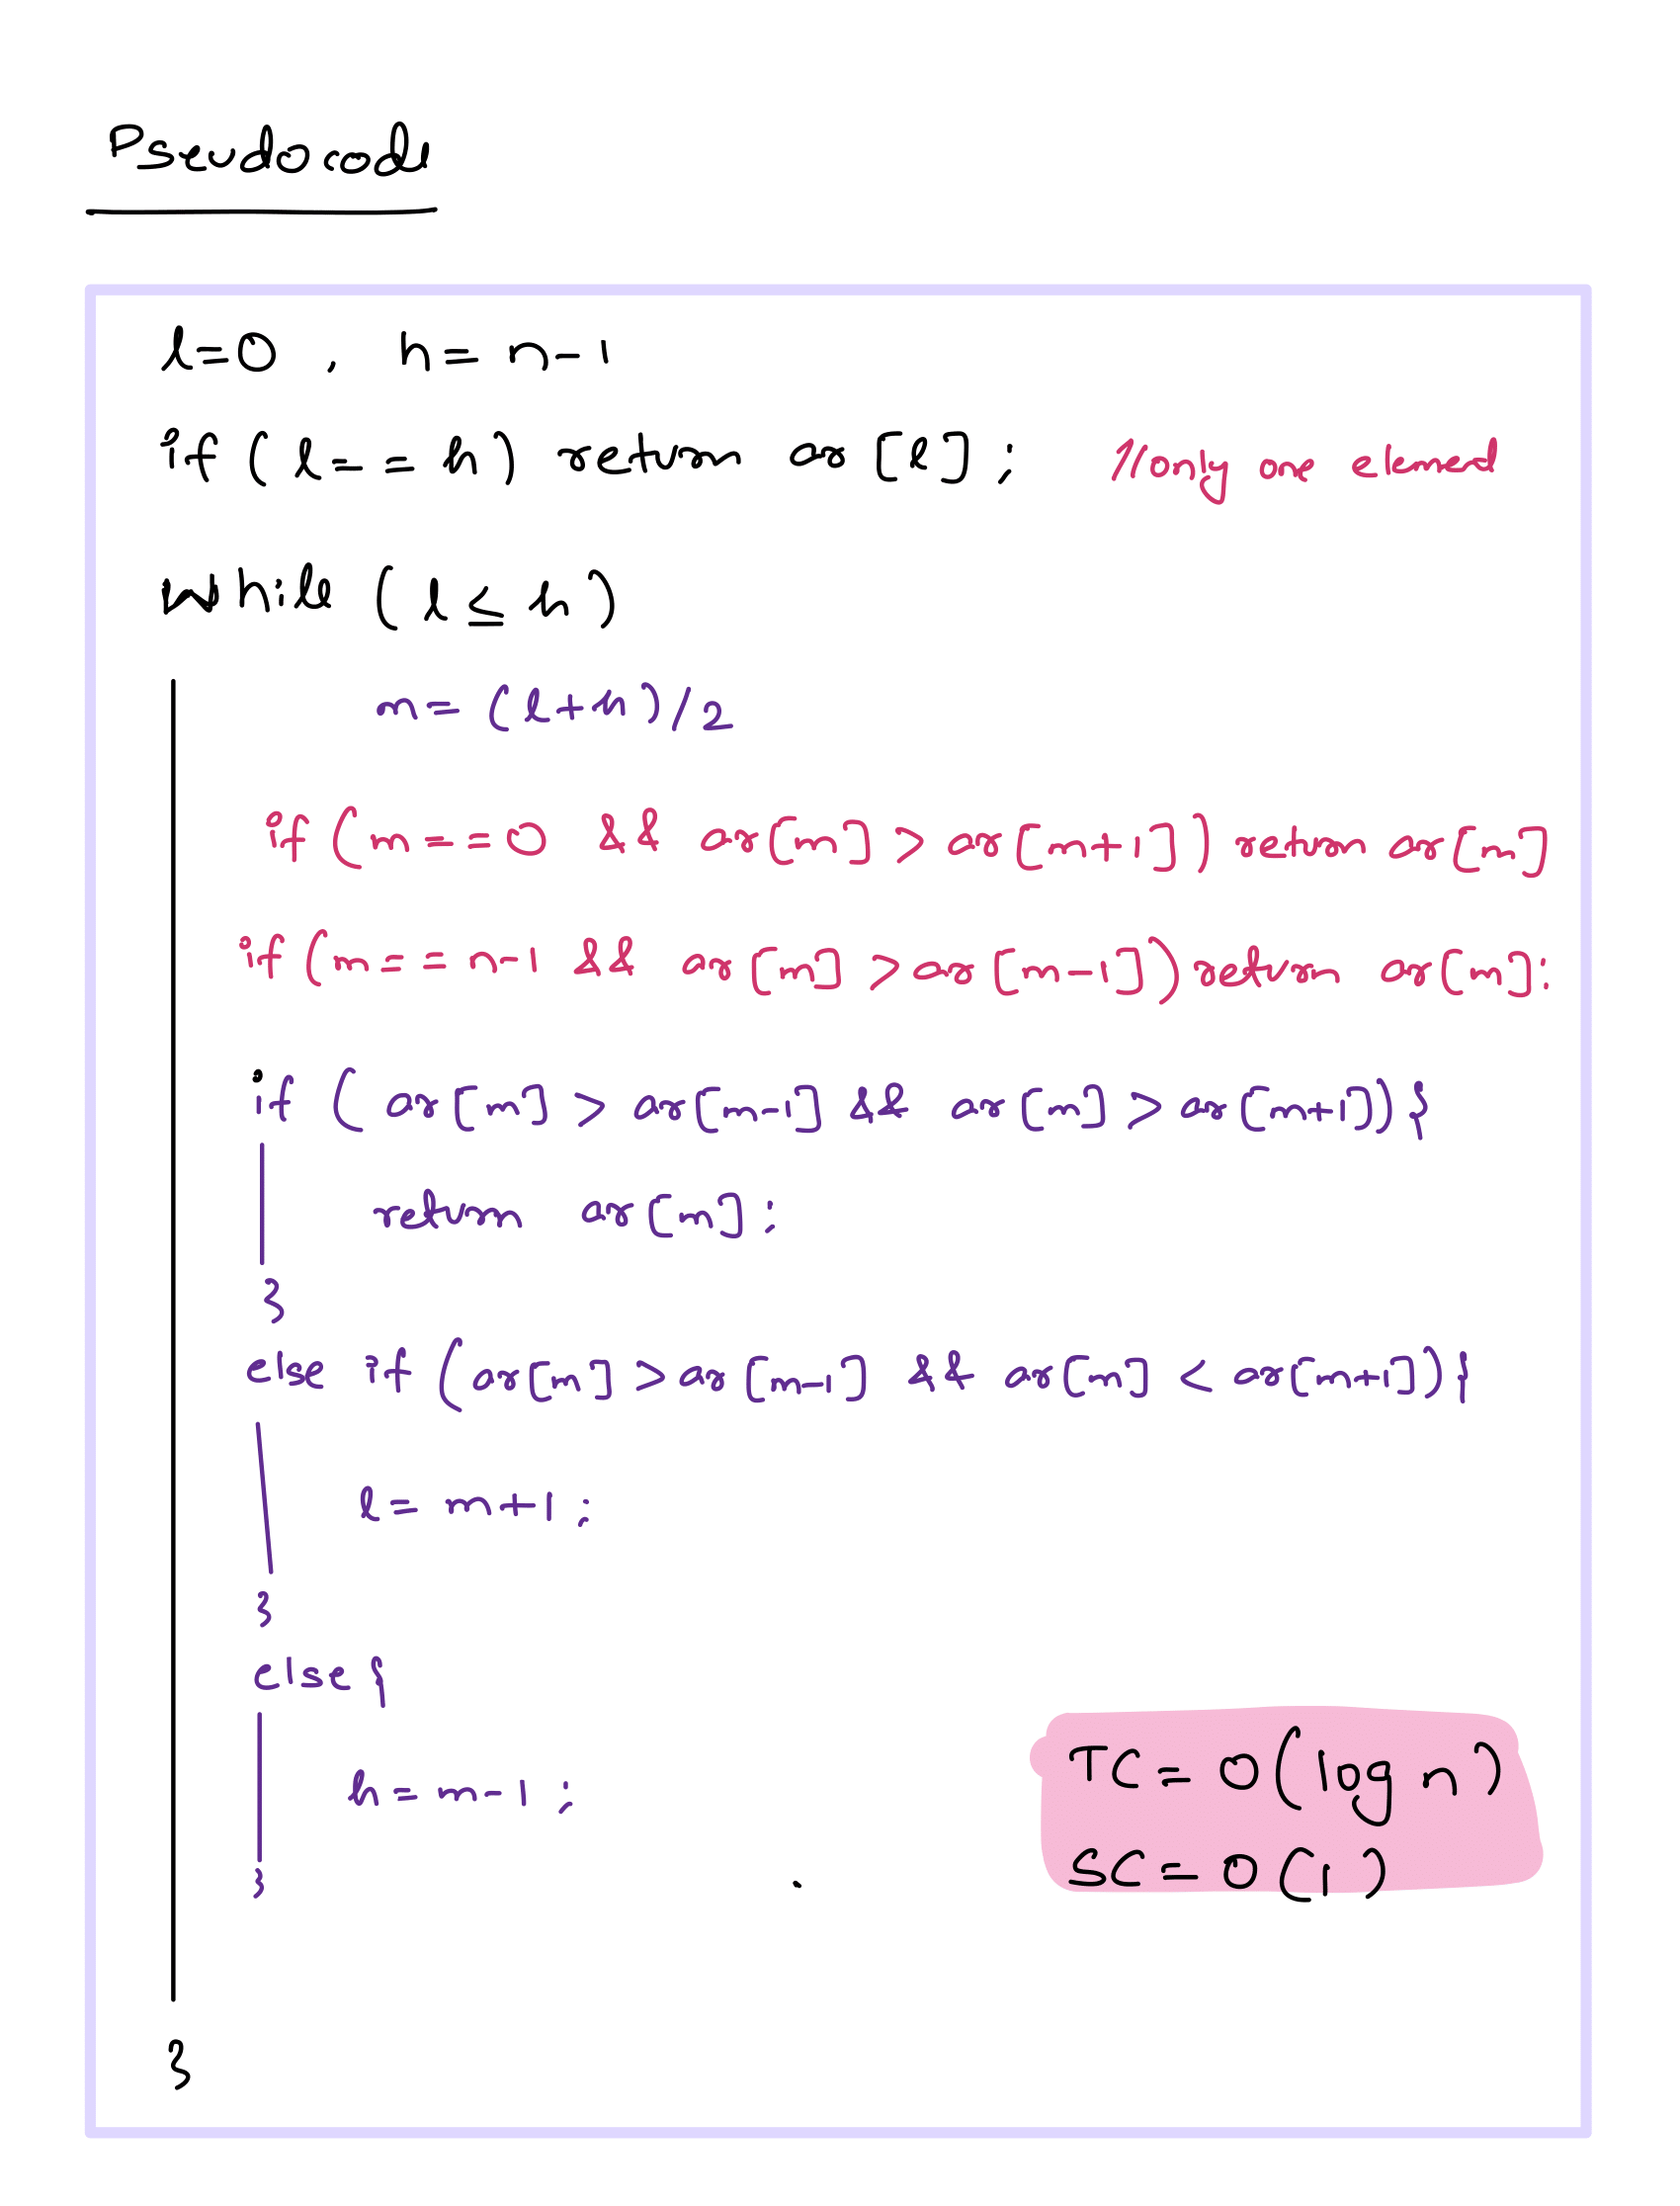 Pseudocode
l=0 , h= n-1
if ( l == h ) return ar [l] ; // only one element
while ( l ≤ h )
m = (l+h)/2
if ( m == 0 && ar[m] > ar[m+1] ) return ar[m]
if ( m == n-1 && ar[m] > ar[m-1] ) return ar[m];
if ( ar[m] > ar[m-1] && ar[m] > ar[m+1] ) {
return ar[m];
}
else if ( ar[m] > ar[m-1] && ar[m] < ar[m+1] ) {
l = m+1 ;
}
else {
h = m-1 ;
}
TC = O(log n)
SC = O(1)
}